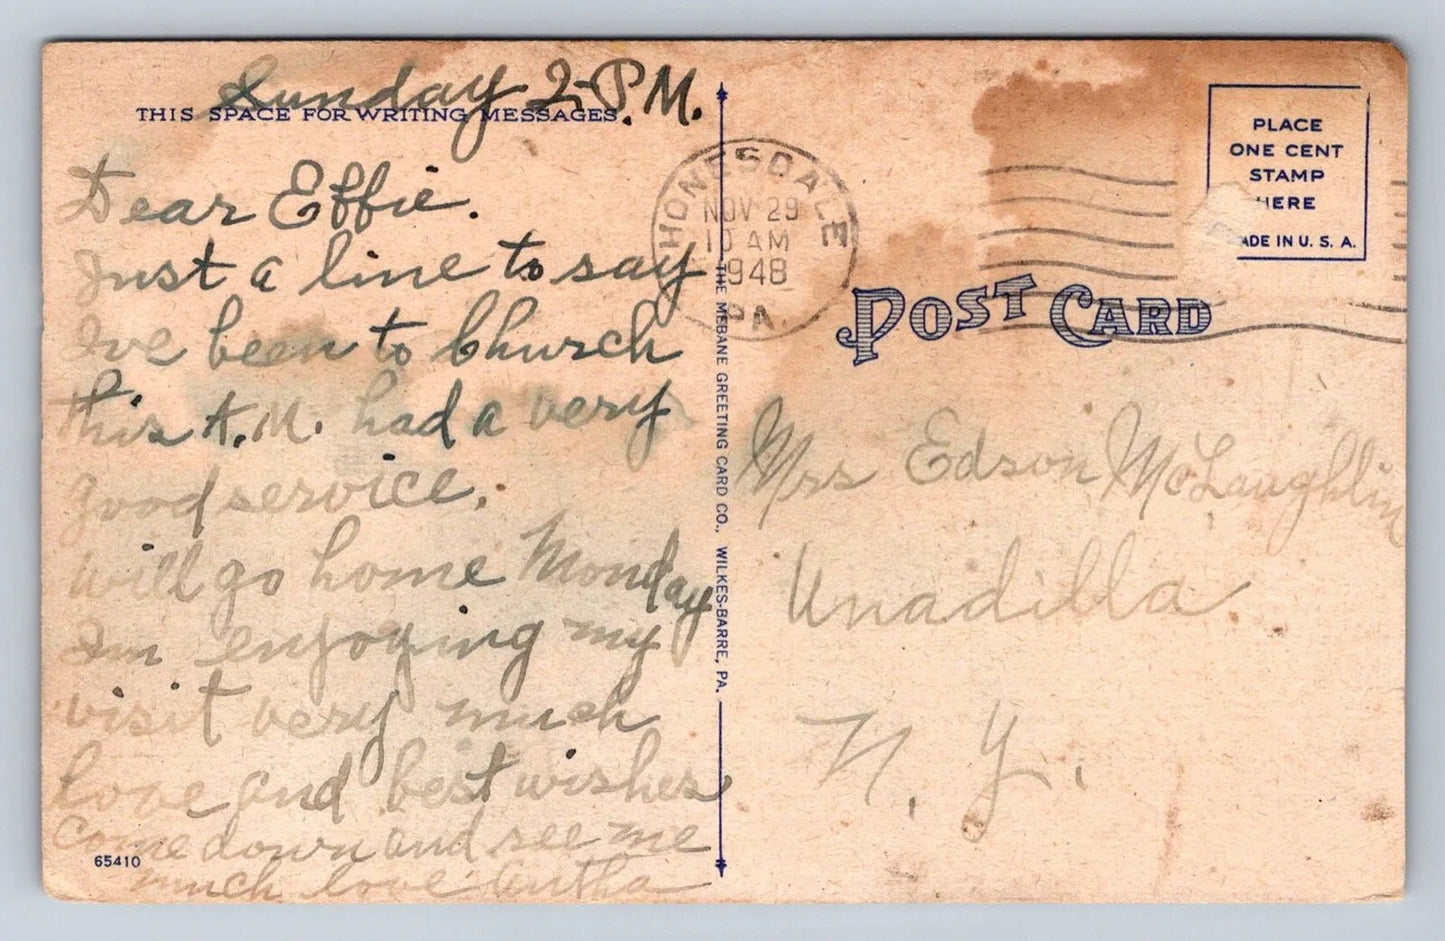 Sunday 2-P.M.
THIS SPACE FOR WRITING MESSAGES.
Dear Effie.
Just a line to say
I've been to Church
this A.M. had a very
good service.
will go home Monday
Im enjoying my
visit very much
love and best wishes
come down and see me
much love
65410
THE MEBANE GREETING CARD CO., WILKES-BARRE, PA.
HONESDALE
NOV 29
10 AM
1948
PA.
PLACE
ONE CENT
STAMP
HERE
MADE IN U. S. A.
POST CARD
Mrs Edson McLaughlin
Unadilla
N. Y.